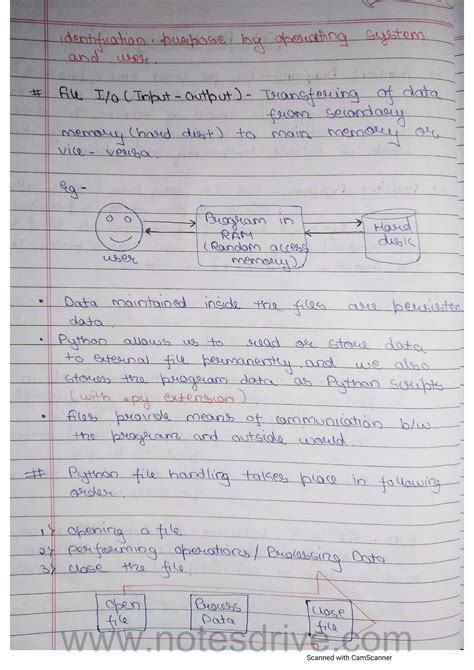 identification purpose by operating system
and user.
# file I/O (Input-Output) - Transfering of data
from secondary
memory (hard dist) to main memory or
vice-versa.
eg -
user
Program in
RAM
(Random access
memory)
Hard
disk
• Data maintained inside the files are persister
data.
• Python allows us to read or store data
to external file permanently and we also
stores the program data as Python scripts
(with .py extension)
• files provide means of communication b/w
the program and outside world.
# Python file handling takes place in following
order.
1) opening a file
2) performing operations / Processing Data
3) close the file.
Open
file
Process
Data
Close
file
www.notesdrive.com
Scanned with CamScanner